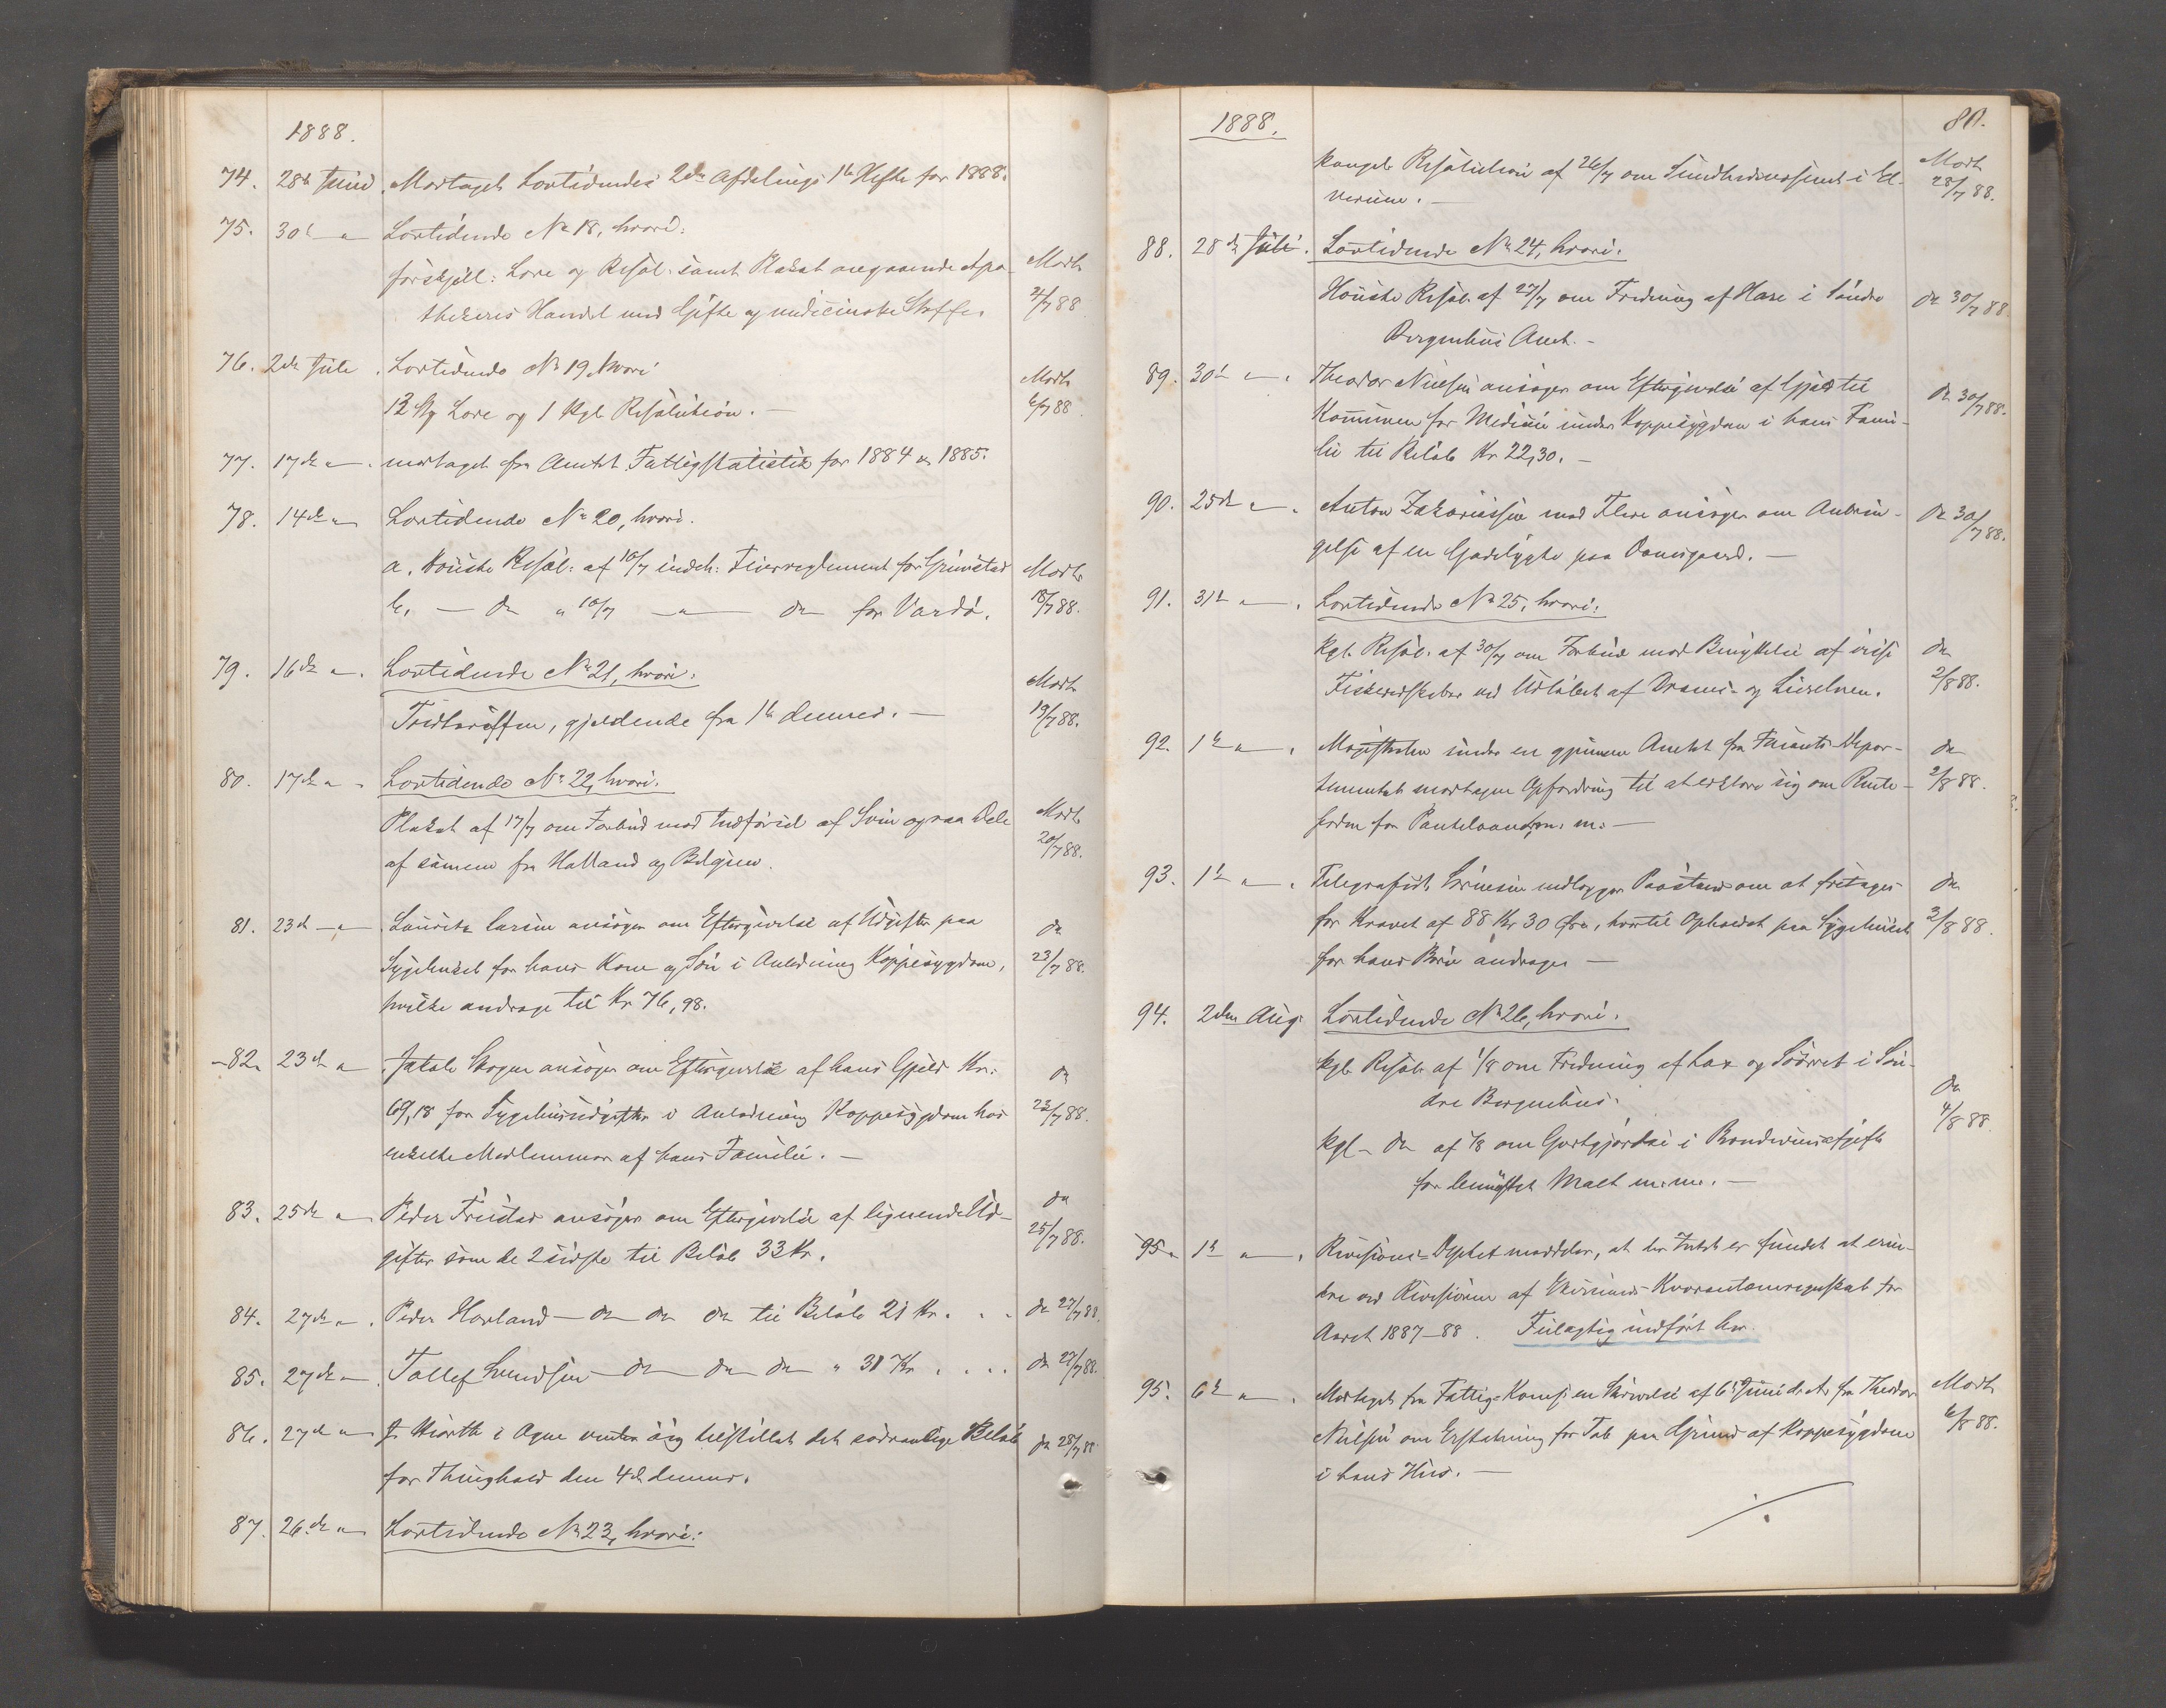 1888.
74. 28de Juni. Modtaget Lovtidendes 2den Afdelings 1te Hefte for 1888.
75. 30te " Lovtidende No 18, hvori:
forskjell: Love og Resol: samt Plakat angaaende Apo- Modt.
thekeres Handel med Gifte og medicinske Stoffe. 4/7 88
76. 2den Juli. Lovtidende No 19 hvori
12 Ny Love og 1 Kgl. Resolution. — Modt. 6/7 88.
77. 17de " . modtaget fra Amtet Fattigstatistik for 1884 & 1885.
78. 14de " Lovtidende No 20, hvori.
a. Norske Resol: af 10/7 indeh: Feierreglement for Grimstad Modt.
b. — do " 10/7 — " — do for Vardø. 18/7 88.
79. 16de " . Lovtidende No 21, hvori:
Toldtariffen, gjeldende fra 1te dennes. — Modt. 19/7 88.
80. 17de " . Lovtidende No 22, hvori.
Plakat af 17/7 om Forbud mod Indførsel af Sviin og raa Dele Modt.
af samme fra Holland og Belgien. 20/7 88.
81. 23de — " — Lauritz Larsen ansøger om Eftergivelse af Udgifter paa do
Sygehuset for hans Kone og Søn i Anledning Koppesygdom, 23/7 88.
hvilke andrage til Kr 76,98.
82. 23de " . Jakob Skogen ansøger om Eftergivelse af hans Gjeld Kr: do
69,18 for Sygehusudgifter i Anledning Koppesygdom hos 23/7 88.
enkelte Medlemmer af hans Familie. —
83. 25de " Peder Frustad ansøger om Eftergivelse af lignende Ud- do
gifter som de 2 sidste til Beløb 33 Kr. 25/7 88.
84. 27de " . Peder Hovland — do do do til Beløb 21 Kr. . . do 27/7 88.
85. 27de " . Tollef Svendsen do do do " 31 Kr . . . . do 27/7 88.
86. 27de " J. Hiorth i Ogne venter sig tilstillet det sædvanlige Beløb do 28/7 88
for Thinghold den 4de dennes.
87. 26de " Lovtidende No 23, hvori:
1888. 80.
kongel. Resolution af 26/7 om Sundhedsvæsenet i El- Modt.
verum. — 28/7 88.
88. 28de Juli. Lovtidende No 24, hvori:
Norske Resol. af 27/7 om Fredning af Hare i Søndre do 30/7 88.
Bergenhus Amt. —
89. 30te " . Theodor Nielsen ansøger om Eftergivelse af Gjæld til do 30/7 88.
Kommunen for Medicin under Koppesygdom i hans Fami-
lie til Beløb Kr 22,30. —
90. 25de " . Anton Zakariassen med Flere ansøger om Anbrin- do 30/7 88.
gelse af en Gadelygte paa Damsgaard. —
91. 31te " . Lovtidende No 25, hvori:
Kgl. Resol. af 30/7 om Forbud mod Benyttelse af visse do
Fiskeredskaber ved Udløbet af Drams- og Lierelven. 2/8 88.
92. 1te " . Magistraten under en gjennem Amtet fra Finants-Depar- do
tementet modtagen Opfordring til at erklære sig om Rente- 2/8 88.
foden for Pantelaan m. m. —
93. 1te " . Telegrafist Sørensen nedlægger Paastand om at fritages do
for Kravet af 88 Kr 30 Øre, hvortil Opholdet paa Sygehuset 2/8 88.
for hans Børn andrager —
94. 2den Aug: Lovtidende No 26, hvori.
kgl. Resol. af 1/8 om Fredning af Lax og Søørret i Søn- do
dre Bergenhus. 4/8 88.
kgl. do af 1/8 om Godtgjørelse i Brændevinsafgift
for benyttet Malt m. m. —
95. 1te " . Revisions-Depket meddeler, at der Intet er fundet at erin-
dre ved Revisionen af Ekersunds Kvarantæneregnskab for
Aaret 1887–88. Feilagtig indført her.
95. 6te " . Modtaget fra Fattig-Komsj. en Skrivelse af 6te Juni d. A. fra Theodor Modt.
Nielsen om Erstatning for Tab paa Grund af Koppesygdom 6/8 88.
i hans Hus. —